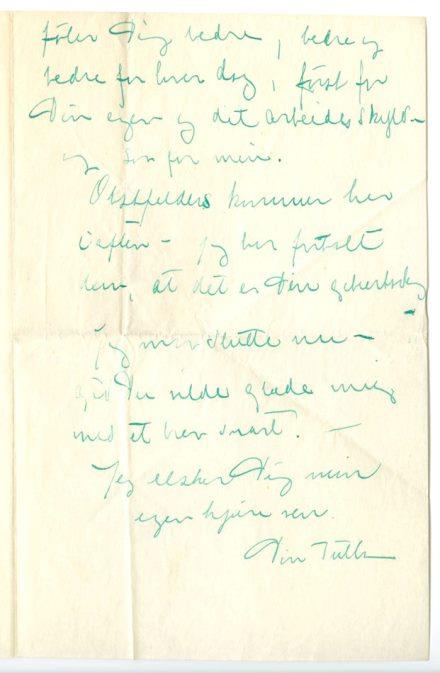 føler Dig bedre, bedre og
bedre for hver dag, først for
Din egen og det arbeides skyld –
og så for min.
Obstfelders kommer her
iaften – jeg har fortalt
dem, at det er Din geburtsdag
Jeg må slutte nu –
gid Du vilde glæde mig
med et brev snart. –
Jeg elsker Dig min
egen kjære ven.
Din Tulla